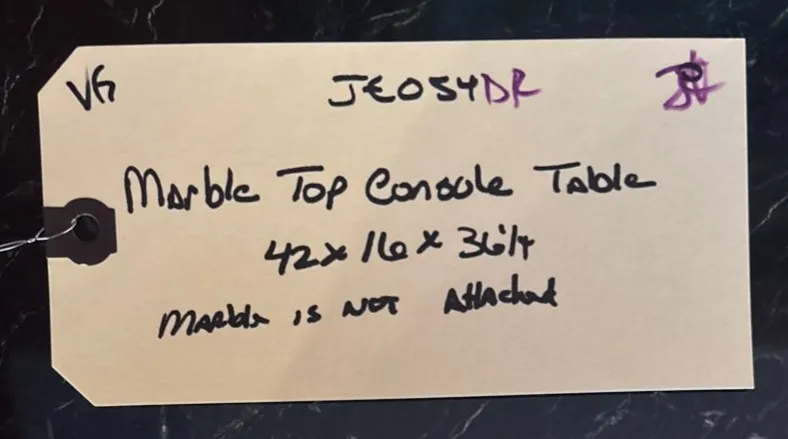 VG JE054DR
Marble Top Console Table
42 x 16 x 36 1/4
Marble is NOT Attached